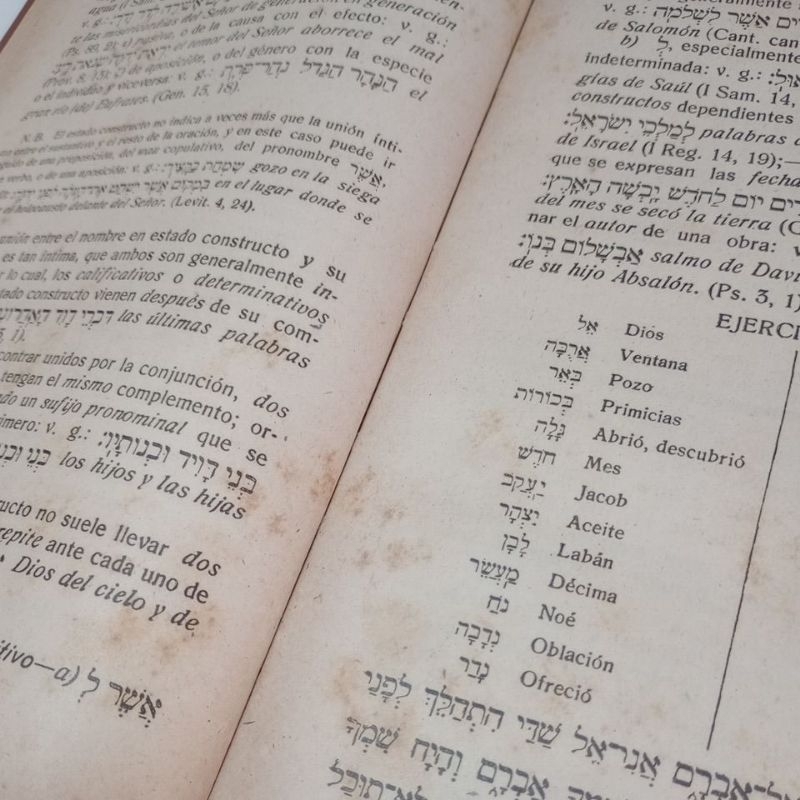 te las misericordias del Señor de generación en generación
(Ps. 89, 2); g) rupiva, o de la causa con el efecto: v. g.:
el temor del Señor aborrece el mal
(Prov. 8, 13); i) de aposición, o del género con la especie
o el individuo y viceversa: v. g.: הַנָּהָר הַגָּדֹל נְהַר־פְּרָת el
gran río (de) Eufrates. (Gen. 15, 18).
N. B. El estado constructo no indica a veces más que la unión ínti-
ma entre el sustantivo y el resto de la oración, y en este caso puede ir
seguido de una preposición, del waw copulativo, del pronombre אֲשֶׁר,
verbo, o de una aposición: v. g.: gozo en la siega
en el lugar donde se
el holocausto delante del Señor. (Levit. 4, 24).
unión entre el nombre en estado constructo y su
es tan íntima, que ambos son generalmente in-
lo cual, los calificativos o determinativos
estado constructo vienen después de su com-
las últimas palabras
contrar unidos por la conjunción, dos
tengan el mismo complemento; or-
un sufijo pronominal que se
primero: v. g.: בְּנֵי דָוִיד וּבְנוֹתָיו׃
los hijos y las hijas
ucto no suele llevar dos
repite ante cada uno de
Dios del cielo y de
itivo—a) אֲשֶׁר לְ
v. g.: אֲשֶׁר לִשְׁלֹמֹה׃
de Salomón (Cant. can
b) לְ, especialmente
indeterminada: v. g.:
gías de Saúl (I Sam. 14,
constructos dependientes
לְמַלְכֵי יִשְׂרָאֵל׃ palabras
de Israel (I Reg. 14, 19);—
que se expresan las fecha
יוֹם לַחֹדֶשׁ יָבְשָׁה הָאָרֶץ׃
del mes se secó la tierra (
nar el autor de una obra:
אַבְשָׁלוֹם בְּנוֹ׃ salmo de Davi
de su hijo Absalón. (Ps. 3, 1)
EJERCI
אֵל Dios
אֲרֻבָּה Ventana
בְּאֵר Pozo
בִּכּוּרוֹת Primicias
גָּלָה Abrió, descubrió
חֹדֶשׁ Mes
יַעֲקֹב Jacob
יִצְהָר Aceite
לָבָן Labán
מַעֲשֵׂר Décima
נֹחַ Noé
נְדָבָה Oblación
נָדַר Ofreció
אַבְרָם אֲנִי־אֵל שַׁדַּי הִתְהַלֵּךְ לְפָנַי
אַבְרָם וְהָיָה שִׁמְךָ